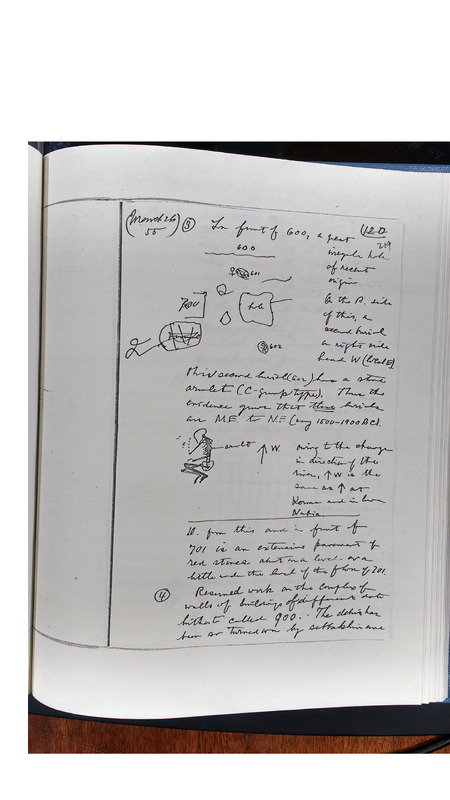 (March 26
55)
③ In front of 600, a great
(120
219
irregular hole
of recent
origin
600
601
700
hole
602
On the R. side
of this, a
second burial
on right side
head W (local E)
This second burial (602) has a stone
armlet (C-group type). Thus the
evidence grows that these burials
are ME to NE (say 1500-1900 BC).
armlet ↑ W.
owing to the change
in direction of the
river, ↑ W is the
same as ↑ at
Kerma and in Lower
Nubia
W. from this and in front of
701 is an extensive pavement of
red stones about on a level or a
little under the level of the floor of 701.
④ Resumed work on the complex of
walls of buildings of different date
hitherto called 900. The debris has
been so turned over by sebbakhin and